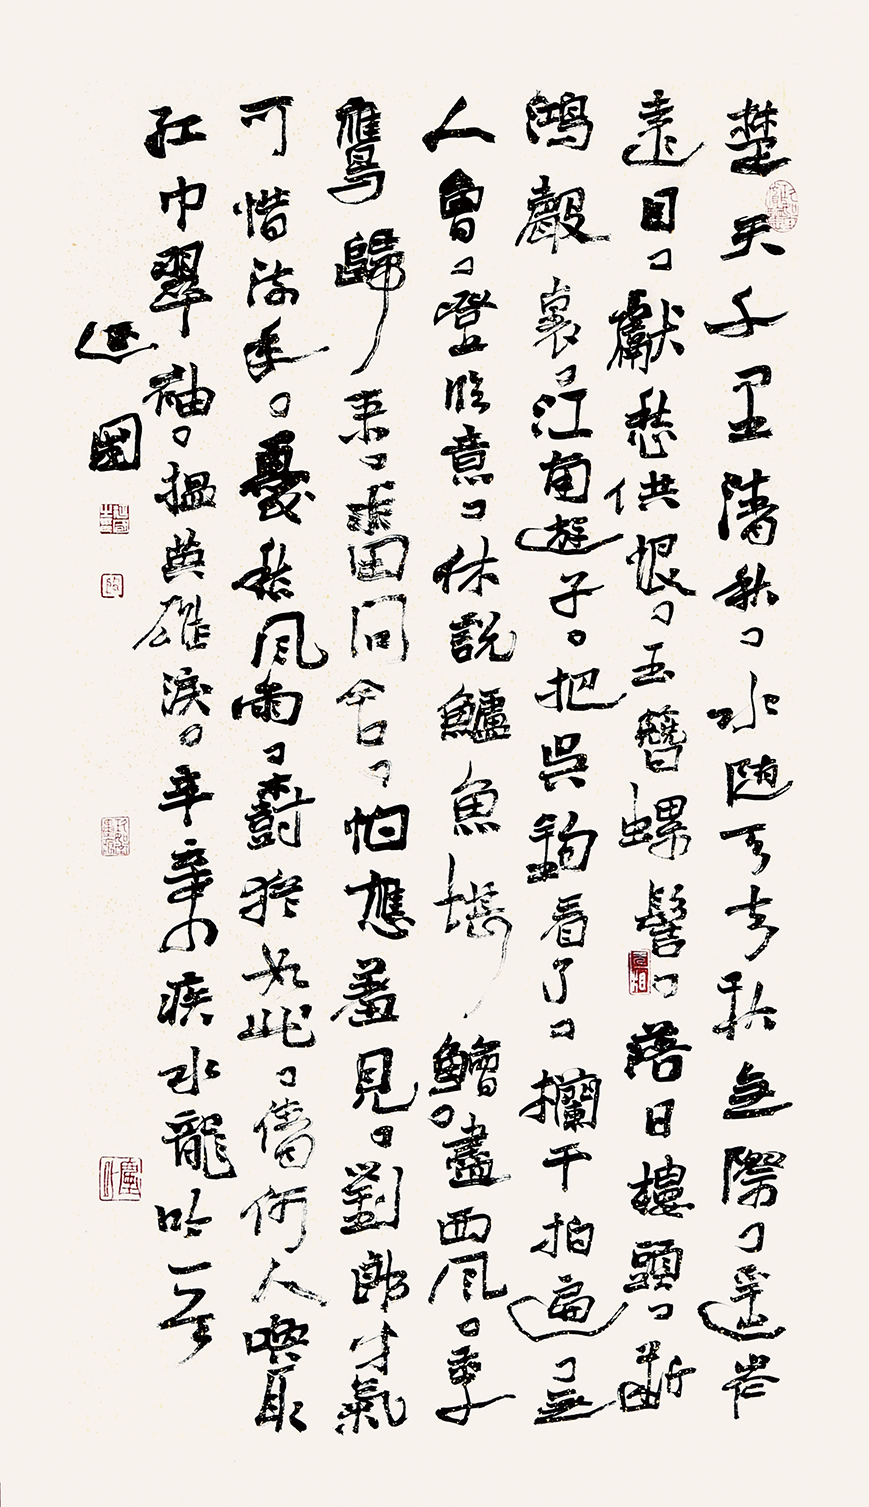 楚天千里清秋，水随天去秋無際，遥岑
遠目，獻愁供恨。玉簪螺髻，落日樓頭，斷
鴻聲裏，江南遊子。把吳鉤看了，攔干拍遍，無
人會，登臨意，休說鱸魚堪鱠。盡西風，季
鷹歸來，求田問舍，怕應羞見。劉郎才氣
可惜流年。憂愁風雨，樹猶如此，倩何人喚取
紅巾翠袖。揾英雄淚。辛棄疾水龍吟一首
國